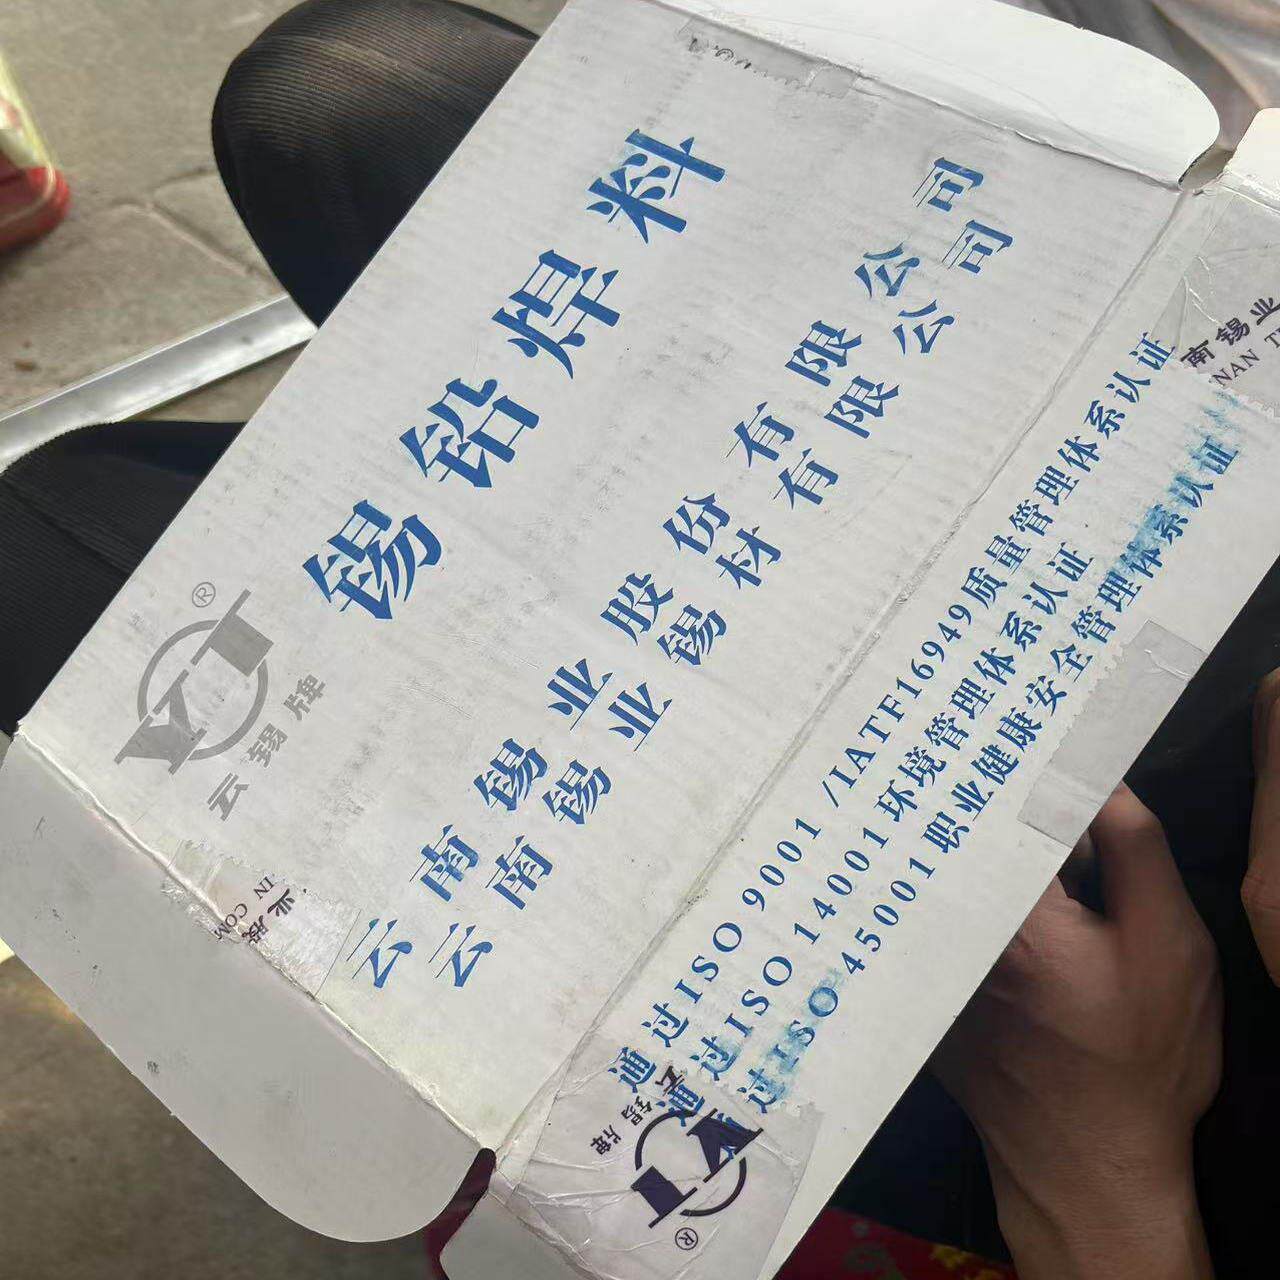 YT®
云锡牌
锡铅焊料
云南锡业股份有限公司
云南锡业锡材有限公司
通过ISO 9001 /IATF16949质量管理体系认证
通过ISO 14001环境管理体系认证
过ISO 45001职业健康安全管理体系认证
业股
IN COM
南锡业
NAN T
云锡牌
YT®